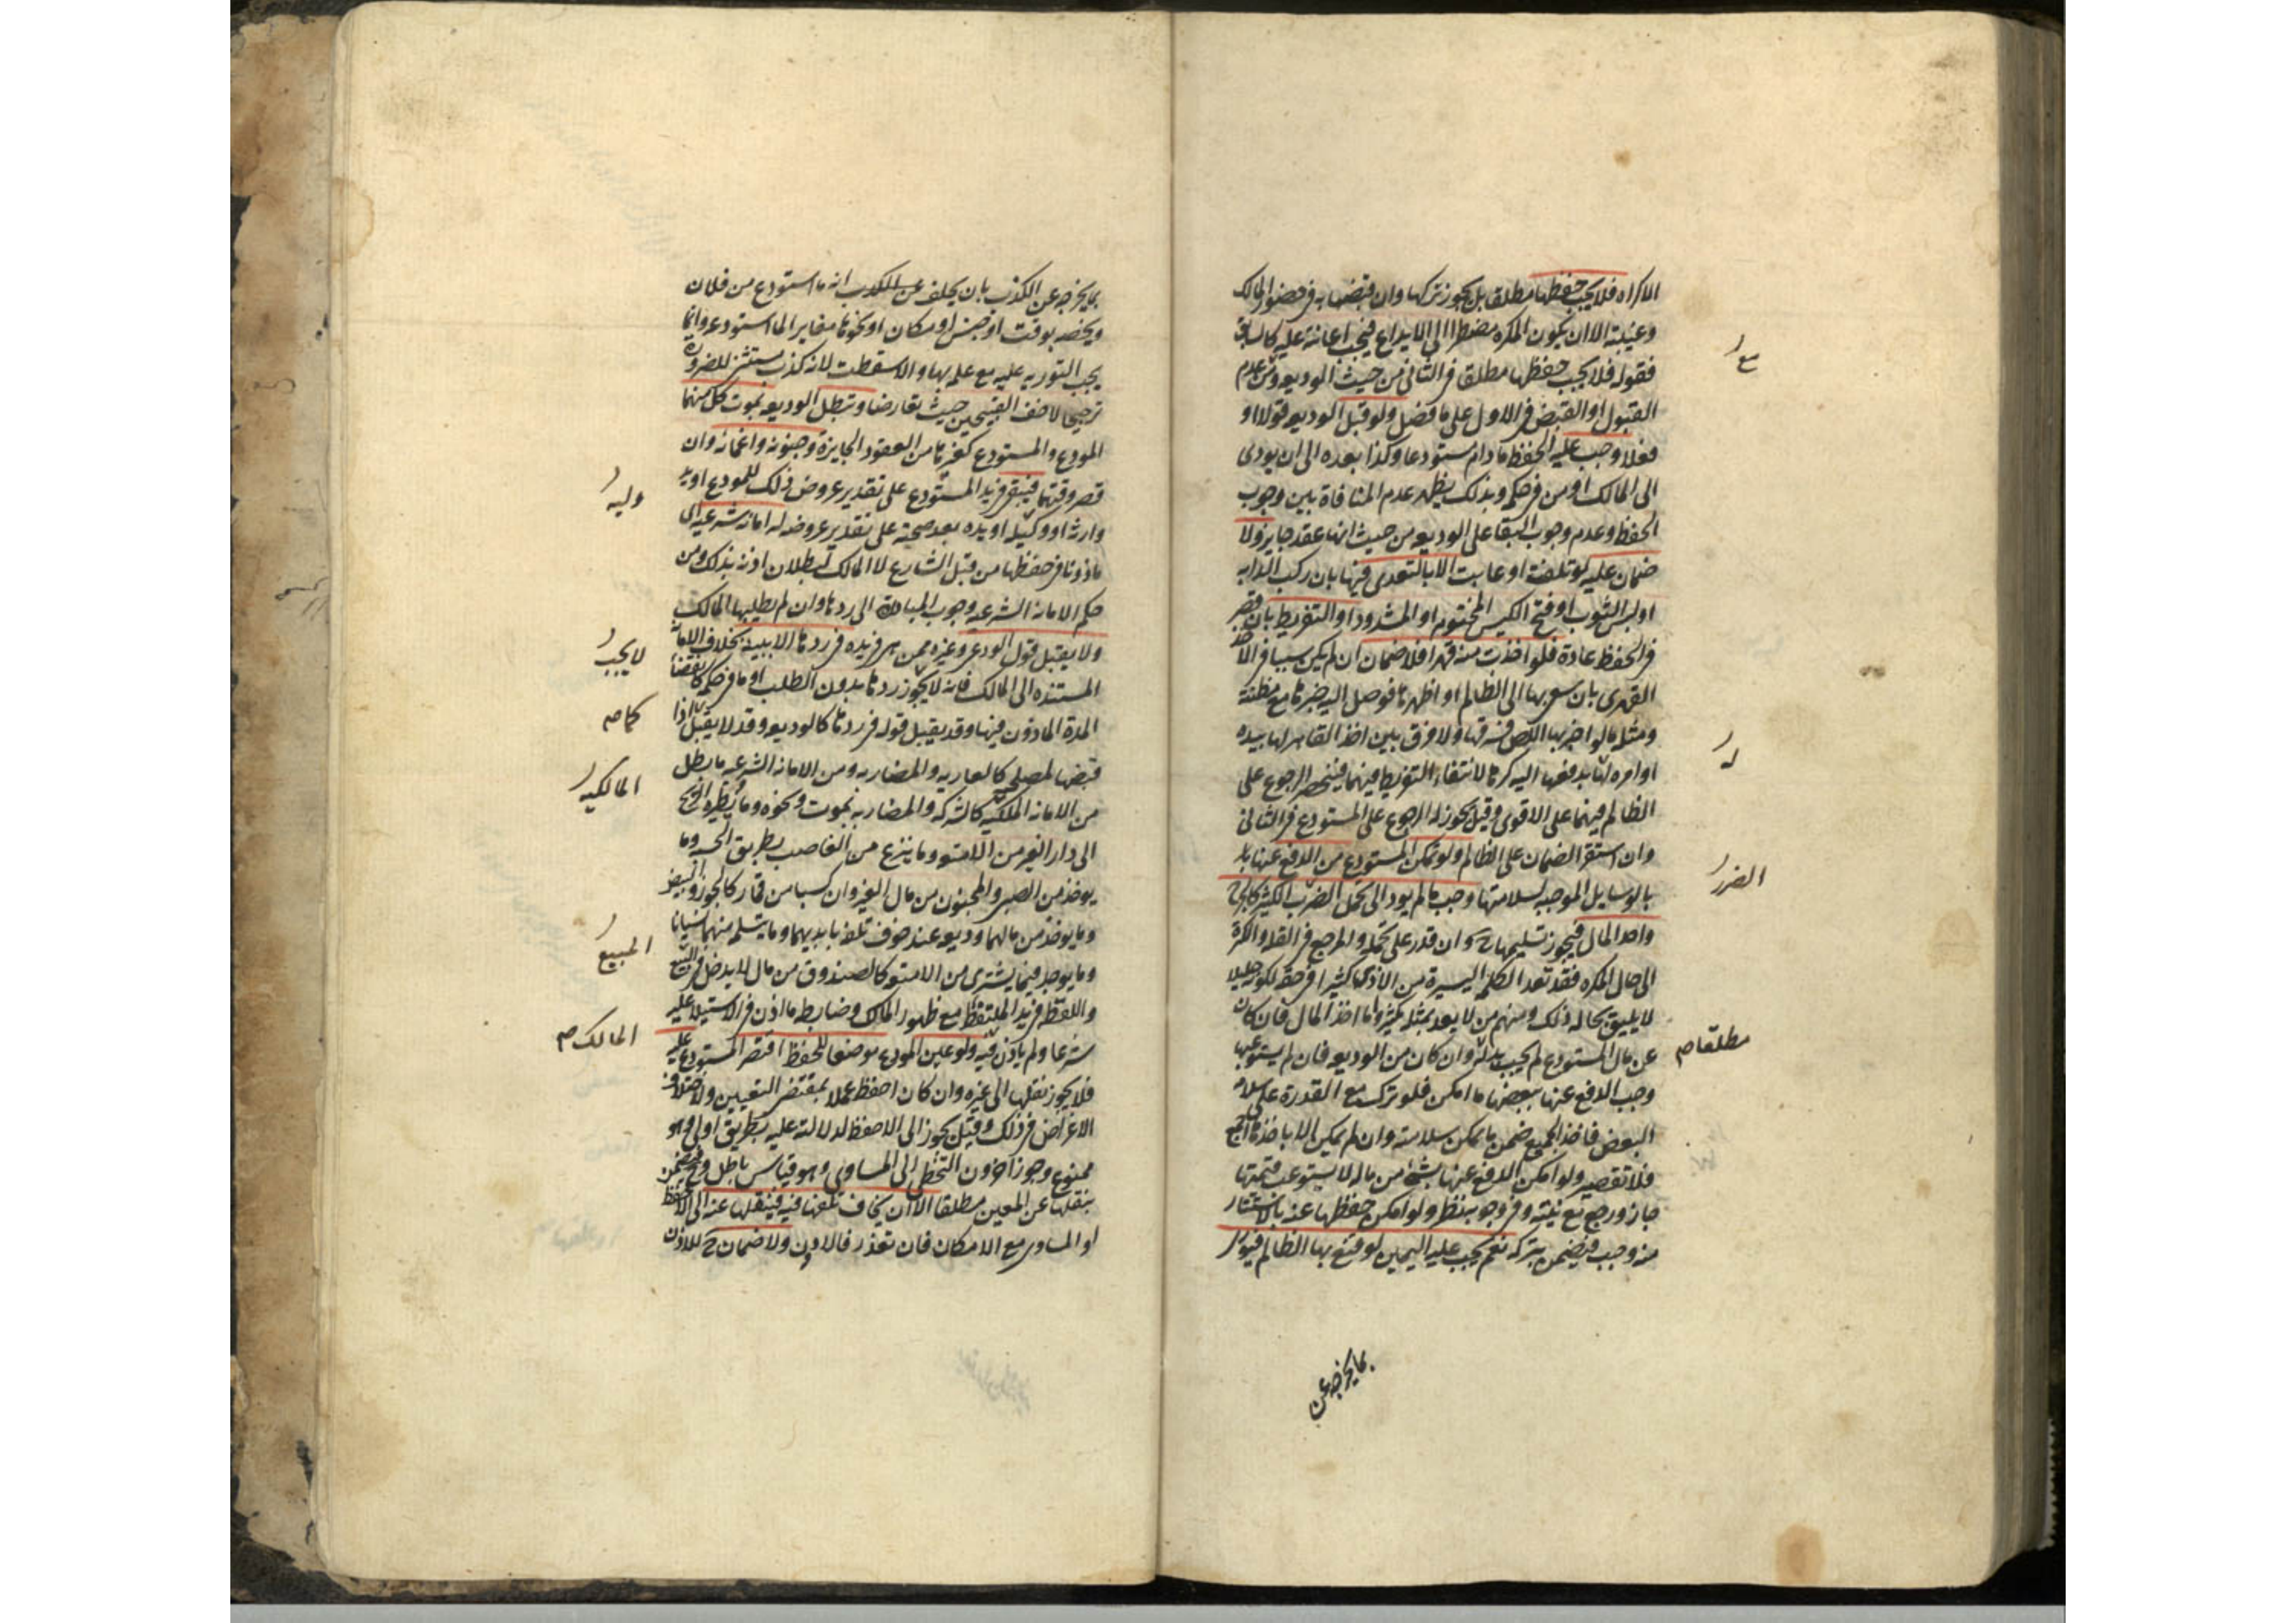 الاكراه فلا يجب حفظها مطلقا بل يجوز تركها وان قبضها به في حضور المالك
وغيبته الا ان يكون المكره مضطرا الى الايداع فيجب اعانة عليه كالسابق
فقوله فلا يجب حفظها مطلقا في الثاني من حيث الوديعه ومن عدم
القبول او القبض في الاول على ما فصل ولو قبل الوديعه قولا او
فعلا وجب عليه الحفظ ما دام مستودعا وكذا بعده الى ان يودى
الى المالك او من في حكمه وبذلك يظهر عدم المنافاة بين وجوب
الحفظ وعدم وجوب البقا على الوديعه من حيث انها عقد جايز ولا
ضمان عليه لو تلفت او عابت الا بالتعدى فيها بان ركب الدابه
او لبس الثوب او فتح الكيس المختوم او المشدود او التفريط بان قصر
في الحفظ عادة فلو اخذت منه قهرا فلا ضمان ان لم يكن سببا في الاخذ
القهرى بان سعى بها الى الظالم او اظهرها فوصل اليه خبرها مع مظنة
ومثله ما لو اخبر بها اللص فسرقها ولا فرق بين اخذ القاهر لها بيده
او امره له بدفعها اليه كرها لانتفاء التفريط فيهما فينحصر الرجوع على
الظالم فيهما على الاقوى وقيل يجوز له الرجوع على المستودع في الثاني
وان استقر الضمان على الظالم ولو تمكن المستودع من الدفع عنها
بالوسايل الموجبه لسلامتها وجب ما لم يود الى تحمل الضرر الكثير كالجرح
واخذ المال فيجوز تسليمها ح وان قدر على تحمله والمرجع في القلة والكثرة
الى حال المكره فقد تعد الكلمه اليسيرة من الاذى كثيرا في حقه لكونه جليلا
لا يليق بحاله ذلك ومنهم من لا يعد بمثله كثير واما اخذ المال فان كان
عن مال المستودع لم يجب بذله وان كان من الوديعه فان لم يستوعبها
وجب الدفع عنها ببعضها ما امكن فلو ترك مع القدرة على سلامة
البعض فاخذ الجميع ضمن ما يمكن سلامته وان لم يمكن الا باخذها اجمع
فلا تقصير ولو امكن الدفع عنها بشئ من ماله لا يستوعب قيمتها
جاز ورجع مع نيته وفي وجوبه نظر ولو امكن حفظها عنه بالاستتار
منه وجب فيضمن بتركه نعم يجب عليه اليمين لو قنع بها الظالم فيورى
بما يخرجه عن
مع
له
الضرر
مطلقا صح
بما يخرجه عن الكذب بان يحلف عن الكذب انه ما استودع من فلان
ويخصه بوقت او جنس او مكان او نحوها مغاير الما استودعه وانما
يجب التوريه عليه مع علمه بها والا سقطت لانه كذب مستثنى للضرورة
ترجيحا لاخف القبيحين حيث تعارضا وتبطل الوديعه بموت كل منهما
المودع والمستودع كغيرها من العقود الجايزة وجنونه واغمائه وان
قصر وقتهما فيبقى في يد المستودع على تقدير عروض ذلك للمودع او يد
وارثه او وكيله او يده بعد صحته على تقدير عروضه له امانه شرعيه اى
ماذونا في حفظها من قبل الشارع لا المالك لبطلان اذنه بذلك ومن
حكم الامانه الشرعيه وجوب المبادرة الى ردها وان لم يطلبها المالك
ولا يقبل قول الودعى وغيره ممن هى في يده في ردها الا ببينة بخلاف الامانة
المستنده الى المالك فانه لا يجوز ردها بدون الطلب او ما في حكمه كانقضاء
المدة الماذون فيها وقد يقبل قوله في ردها كالوديعه وقد لا يقبل اذا
قبضها لمصلحته كالعاريه والمضاربه ومن الامانة الشرعيه ما بطل
من الامانه الملكيه كالشركه والمضاربه بموت ونحوه وما تطيره الريح
الى دار الغير من الامتعه وما ينزع من الغاصب بطريق الحسبه وما
يوخذ من الصبى والمجنون من مال الغير وان كسبا من قمار كالجوز والبيض
وما يوخذ من مالهما وديعه عند خوف تلفه بايديهما وما يتسلمه منهما نسيانا
وما يوجد فيما يشترى من الامتعه كالصندوق من مال لا يدخل في البيع
واللقطة في يد الملتقط مع ظهور المالك وضابطه ما اذن في الاستيلا عليه
شرعا ولم ياذن فيه ولو عين المودع موضعا للحفظ اقتصر المستودع عليه
فلا يجوز نقلها الى غيره وان كان احفظ عملا بمقتضى التعيين ولاختلاف
الاغراض في ذلك وقيل يجوز الى الاحفظ لدلالته عليه بطريق اولى وهو
ممنوع وجوز اخرون التخطى الى المساوى وهو قياس باطل وح فيضمن
بنقلها عن المعين مطلقا الا ان يخاف تلفها فيه فينقلها عنه الى الاحفظ
او المساوى مع الامكان فان تعذر فالادون ولا ضمان ح للاذن
وليه
لا يجب
كما صح
المالكيه
المبيع
المالك صح